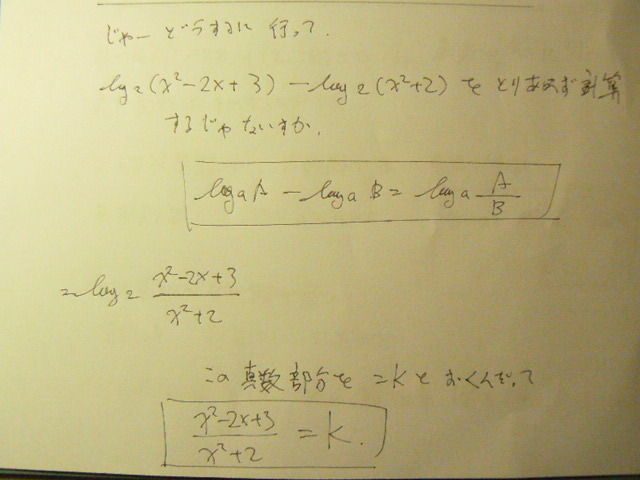 じゃー どうするに 行って.
log₂(x²-2x+3) - log₂(x²+2) を とりあえず計算
するじゃないすか.
logₐA - logₐB = logₐ A/B
= log₂ (x²-2x+3)/(x²+2)
この 真数部分を = K と おくんだって
(x²-2x+3)/(x²+2) = K.